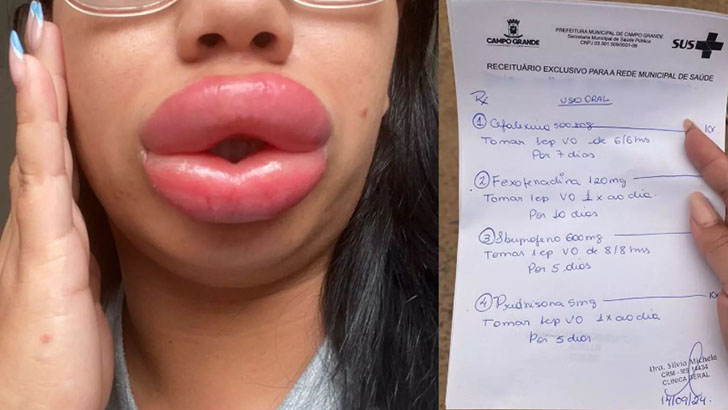 CAMPO GRANDE
PREFEITURA MUNICIPAL DE CAMPO GRANDE
Secretaria Municipal de Saúde Pública
CNPJ 03.501.509/0001-06
SUS
RECEITUÁRIO EXCLUSIVO PARA A REDE MUNICIPAL DE SAÚDE
Rx USO ORAL
1 Cefalexina 500mg
Tomar 1cp VO de 6/6hs
Por 7 dias
2 Fexofenadina 120mg
Tomar 1cp VO 1x ao dia
Por 10 dias
3 Ibuprofeno 600mg
Tomar 1cp VO de 8/8 hrs
Por 5 dias
4 Prednisona 5mg
Tomar 1cp VO 1x ao dia
Por 5 dias
Dra. Silvia
CRM - MS 14434
CLÍNICA GERAL
14/09/24